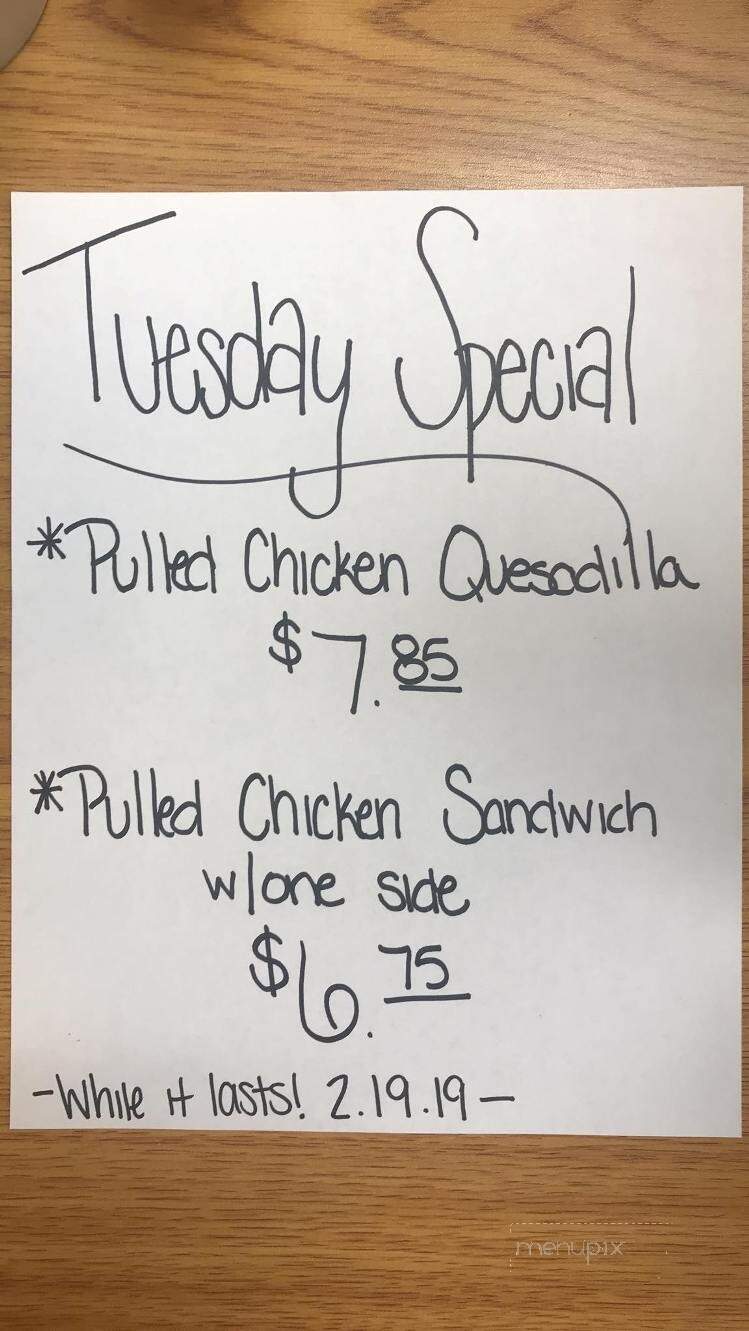 Tuesday Special
*Pulled Chicken Quesadilla
$7.85
*Pulled Chicken Sandwich
w/one side
$6.75
-While it lasts! 2.19.19-
menupix